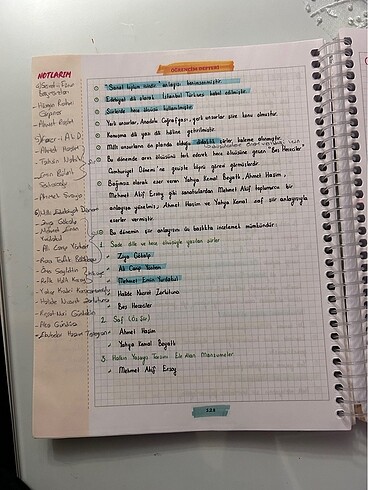 ÖĞRENCİM DEFTERİ
NOTLARIM
"Sanat toplum içindir" anlayışı benimsenmiştir.
Edebiyat dili olarak İstanbul Türkçesi kabul edilmiştir.
Şiirlerde hece ölçüsü kullanılmıştır.
Yerli unsurlar, Anadolu Coğrafyası, yerli unsurlar şiire konu olmuştur.
Konuşma dili yazı dili hâline getirilmiştir.
Milli unsurların ön planda olduğu didaktik şiirler, kaleme alınmıştır.
Bu dönemde aruz ölçüsünü terk ederek hece ölçüsüne geçen "Beş Hececiler"
Cumhuriyet Dönemi'ne geçişte köprü görevi görmüşlerdir.
Bağımsız olarak eser veren Yahya Kemal Beyatlı, Ahmet Haşim,
Mehmet Akif Ersoy gibi sanatçılardan Mehmet Akif toplumcu bir
anlayışa yönelmiş, Ahmet Haşim ve Yahya Kemal saf şiir anlayışıyla
eserler vermiştir.
Bu dönemin şiir anlayışını üç başlıkta incelemek mümkündür:
1. Sade dille ve hece ölçüsüyle yazılan şiirler
Ziya Gökalp
Ali Canip Yöntem
Mehmet Emin Yurdakul
Halide Nusret Zorlutuna
Beş Hececiler
2. Saf (Öz Şiir)
Ahmet Haşim
Yahya Kemal Beyatlı
3. Halkın Yaşayış Tarzını Ele Alan Manzumeler
Mehmet Akif Ersoy
Ahmet Haşim
Tahsin Nahit
Emin Bülent
Ziya Gökalp
Mehmet Emin
Yurdakul
Ali Canip Yöntem
Refik Halit Karay
Yakup Kadri Karaosmanoğlu
Halide Nusret Zorlutuna
Reşat Nuri Güntekin
Aka Gündüz